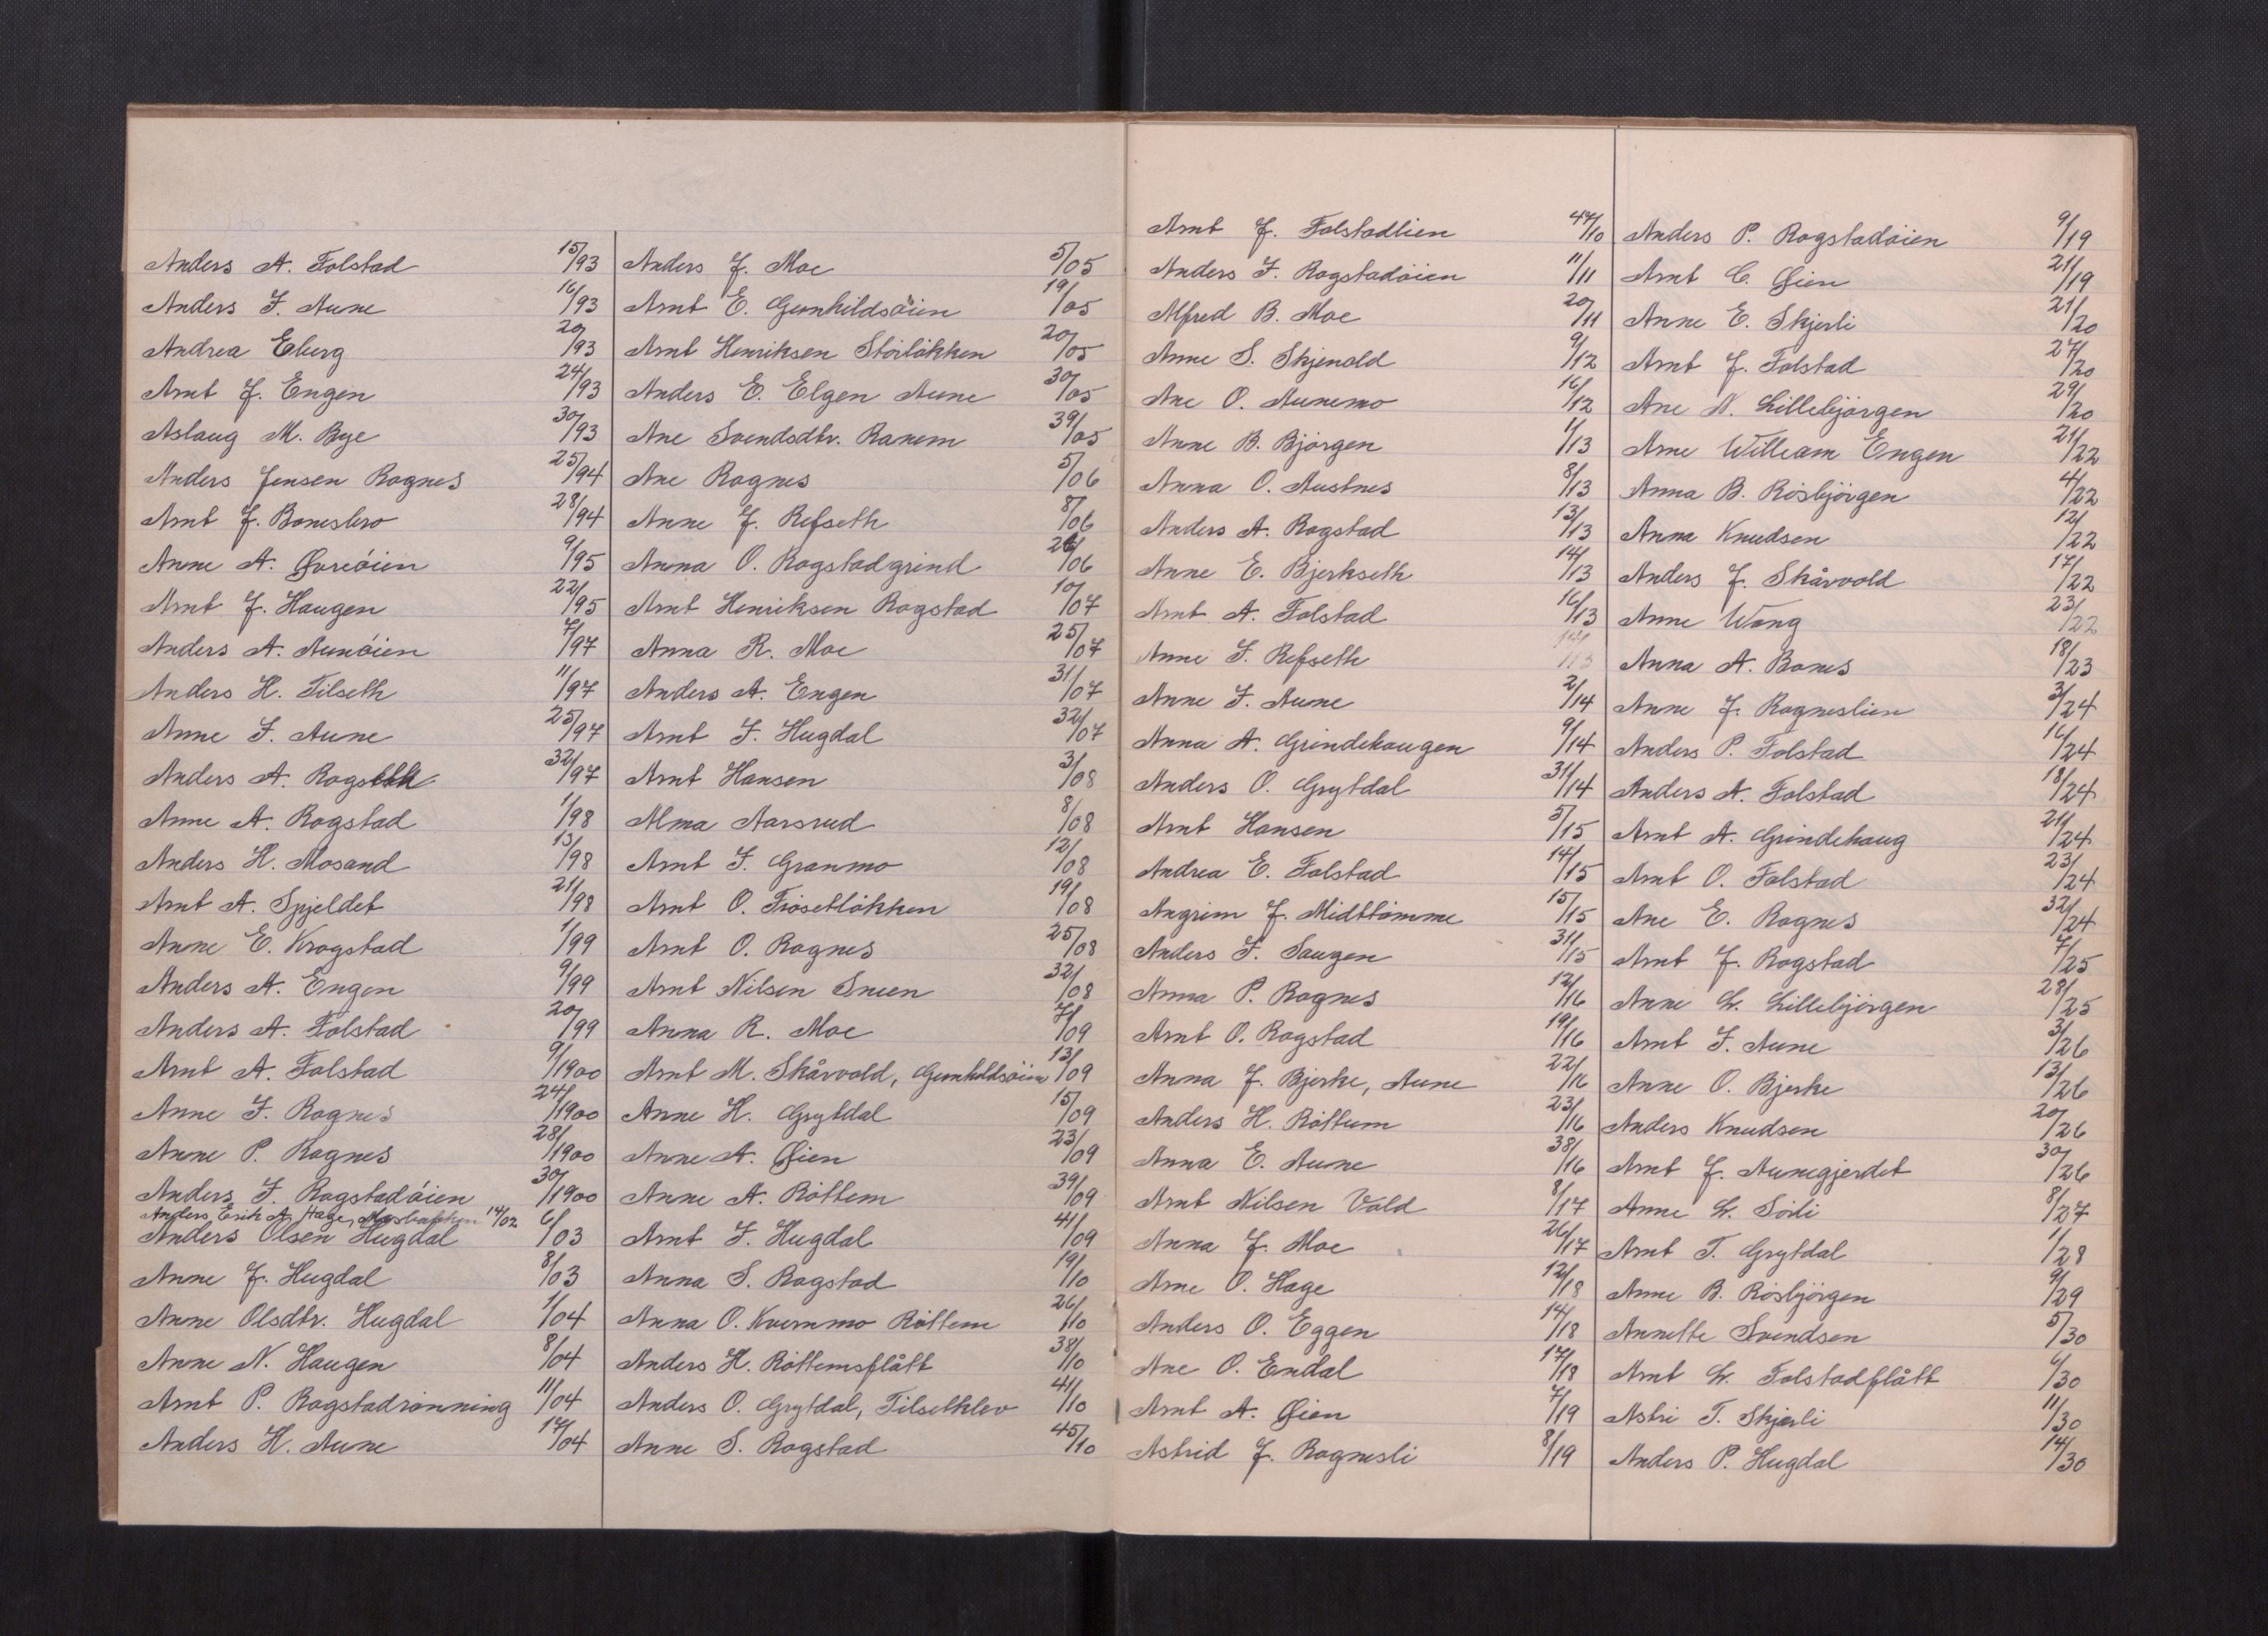 Anders A. Folstad 15/93
Anders J. Aune 16/93
Andrea Eberg 20/93
Arnt J. Engen 24/93
Aslaug M. Bye 30/93
Anders Jensen Rognes 25/94
Arnt J. Bonesbro 28/94
Anne A. Øvreöien 9/95
Arnt J. Haugen 22/95
Anders A. Aunöien 7/97
Anders H. Tilseth 11/97
Anne J. Aune 25/97
Anders A. 32/97
Anne A. Rogstad 1/98
Anders H. Mosand 13/98
Arnt A. Spjeldet 21/98
Anne E. Krogstad 1/99
Anders A. Engen 9/99
Anders A. Folstad 20/99
Arnt A. Folstad 9/1900
Anne J. Rognes 24/1900
Anne P. Rognes 28/1900
Anders J. Rogstadöien 30/1900
Anders Erik A. Hage, 14/02
Anders Olsen Hugdal 6/03
Anne J. Hugdal 8/03
Anne Olsdtr. Hugdal 1/04
Anne N. Haugen 8/04
Arnt P. Rogstadrönning 11/04
Anders H. Aune 17/04
Anders J. Moe 5/05
Arnt E. Gunhildsöien 19/05
Arnt Henriksen Störlökken 20/05
Anders E. Elgen Aune 30/05
Ane Svendsdtr. Ranem 39/05
Ane Rognes 5/06
Anne J. Refseth 8/06
Anna O. Rogstadgrind 26/06
Arnt Henriksen Rogstad 10/07
Anna R. Moe 25/07
Anders A. Engen 31/07
Arnt J. Hugdal 32/07
Arnt Hansen 3/08
Alma Aarsrud 8/08
Arnt J. Granmo 12/08
Arnt O. Frösetlökken 19/08
Arnt O. Rognes 25/08
Arnt Nilsen Sneen 32/08
Anna R. Moe 7/09
Arnt M. Skårvold, Gunhildsöien 13/09
Anne H. Grytdal 15/09
Anne A. Øien 23/09
Anne A. Röttem 39/09
Arnt J. Hugdal 41/09
Anna S. Rogstad 19/10
Anna O. Kvernmo Röttem 26/10
Anders H. Röttemsflått 38/10
Anders O. Grytdal, Tilsetklev 41/10
Anne S. Rogstad 45/10
Arnt J. Folstadlien 47/10
Anders J. Rogstadöien 11/11
Alfred B. Moe 20/11
Anne S. Skjenald 9/12
Ane O. Aunemo 16/12
Anne B. Björgen 1/13
Anna O. Austnes 8/13
Anders A. Rogstad 13/13
Anne E. Bjerkseth 14/13
Arnt A. Folstad 16/13
Anne J. Refseth 14/13
Anne J. Aune 2/14
Anna A. Grindehaugen 9/14
Anders O. Grytdal 31/14
Arnt Hansen 5/15
Andrea E. Folstad 14/15
Angrim J. Midttömme 15/15
Anders J. Saugen 31/15
Anna P. Rognes 12/16
Arnt O. Rogstad 19/16
Anna J. Bjerke, Aune 22/16
Anders H. Röttum 23/16
Anna E. Aune 38/16
Arnt Nilsen Vold 8/17
Anna J. Moe 26/17
Arne O. Hage 12/18
Anders O. Eggen 14/18
Ane O. Endal 17/18
Arnt A. Øien 7/19
Astrid J. Rognesli 8/19
Anders P. Rogstadöien 9/19
Arnt C. Øien 21/19
Anne E. Skjerli 21/20
Arnt J. Folstad 27/20
Ane N. Lillebjörgen 29/20
Arne William Engen 21/22
Anna B. Rösbjörgen 4/22
Anna Knudsen 12/22
Anders J. Skårvold 17/22
Anne Wang 23/22
Anna A. Bones 18/23
Anne J. Rogneslien 3/24
Anders P. Folstad 16/24
Anders A. Folstad 18/24
Arnt A. Grindehaug 21/24
Arnt O. Folstad 23/24
Ane E. Rognes 32/24
Arnt J. Rogstad 7/25
Anne L. Lillebjörgen 28/25
Arnt J. Aune 3/26
Anne O. Bjerke 13/26
Anders Knudsen 20/26
Arnt J. Aunegjerdet 30/26
Anne L. Sörli 8/27
Arnt T. Grytdal 1/28
Anne B. Rösbjörgen 9/29
Annette Svendsen 5/30
Arnt L. Folstadflått 6/30
Astri T. Skjerli 11/30
Anders P. Hugdal 14/30